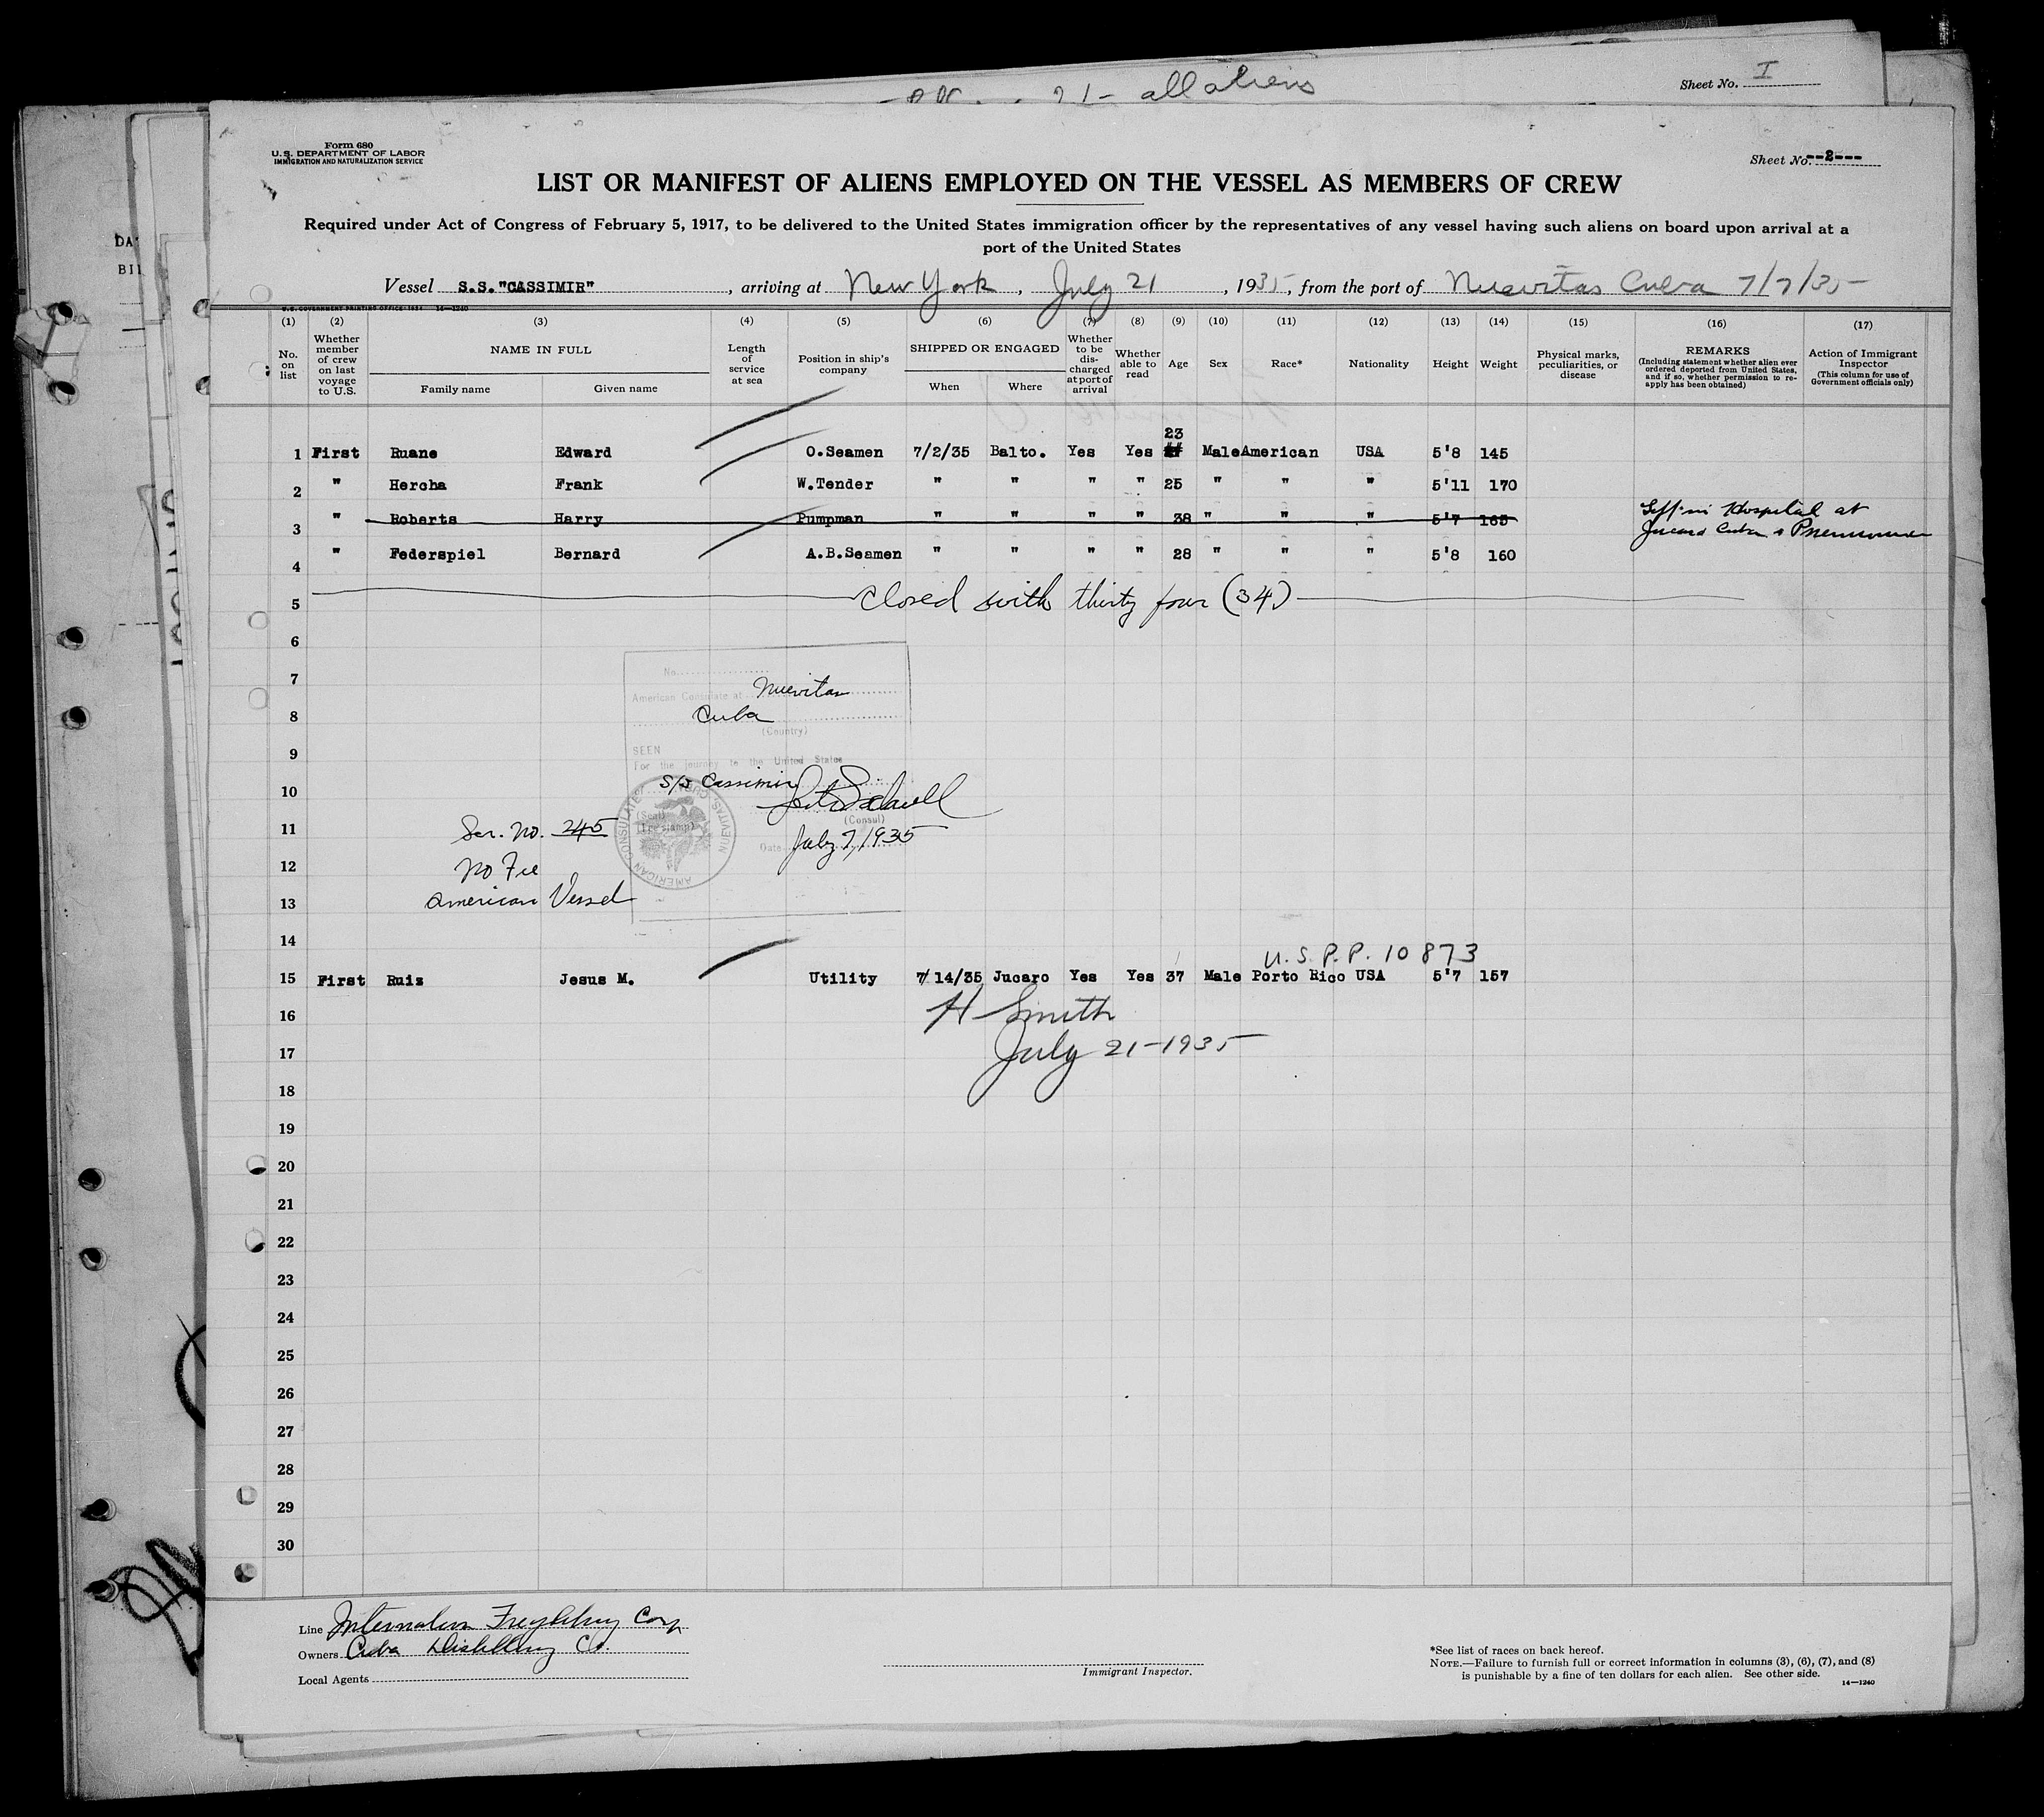 all aliens
Sheet No. I
Form 680
U.S. DEPARTMENT OF LABOR
IMMIGRATION AND NATURALIZATION SERVICE
Sheet No. --2---
LIST OR MANIFEST OF ALIENS EMPLOYED ON THE VESSEL AS MEMBERS OF CREW
Required under Act of Congress of February 5, 1917, to be delivered to the United States immigration officer by the representatives of any vessel having such aliens on board upon arrival at a
port of the United States
Vessel S.S."CASSIMIR", arriving at New York, July 21, 1935, from the port of Nuevitas Cuba 7/7/35
U.S. GOVERNMENT PRINTING OFFICE: 1934 14—1240
(1) (2) (3) (4) (5) (6) (7) (8) (9) (10) (11) (12) (13) (14) (15) (16) (17)
No. on list
Whether member of crew on last voyage to U.S.
NAME IN FULL
Family name Given name
Length of service at sea
Position in ship's company
SHIPPED OR ENGAGED
When Where
Whether to be discharged at port of arrival
Whether able to read
Age
Sex
Race*
Nationality
Height
Weight
Physical marks, peculiarities, or disease
REMARKS
(Including statement whether alien ever ordered deported from United States, and if so, whether permission to reapply has been obtained)
Action of Immigrant Inspector
(This column for use of Government officials only)
23
1 First Ruane Edward O.Seamen 7/2/35 Balto. Yes Yes Male American USA 5'8 145
2 " Hercha Frank W.Tender " " " " 25 " " " 5'11 170
3 " Roberts Harry Pumpman " " " " 38 " " " 5'7 165 Left in Hospital at
Jucaro Cuba Pneumonia
4 " Federspiel Bernard A.B.Seamen " " " " 28 " " " 5'8 160
5 Closed with thirty four (34)
6
7 No.
American Consulate at Nuevitas
8 Cuba
(Country)
9 SEEN
For the journey to the United States
10 S/S Cassimir
11 Ser. No. 245 (Seal) (Consul)
Date July 7, 1935
AMERICAN CONSULATE NUEVITAS, CUBA
12 No Fee
13 American Vessel
14 U.S.P.P. 10873
15 First Ruiz Jesus M. Utility 7/14/35 Jucaro Yes Yes 37 Male Porto Rico USA 5'7 157
16 H Smith
17 July 21-1935
18
19
20
21
22
23
24
25
26
27
28
29
30
Line Freighting Corp
Owners Cuba Distilling Co.
Local Agents
Immigrant Inspector.
*See list of races on back hereof.
NOTE.—Failure to furnish full or correct information in columns (3), (6), (7), and (8)
is punishable by a fine of ten dollars for each alien. See other side.
14—1240